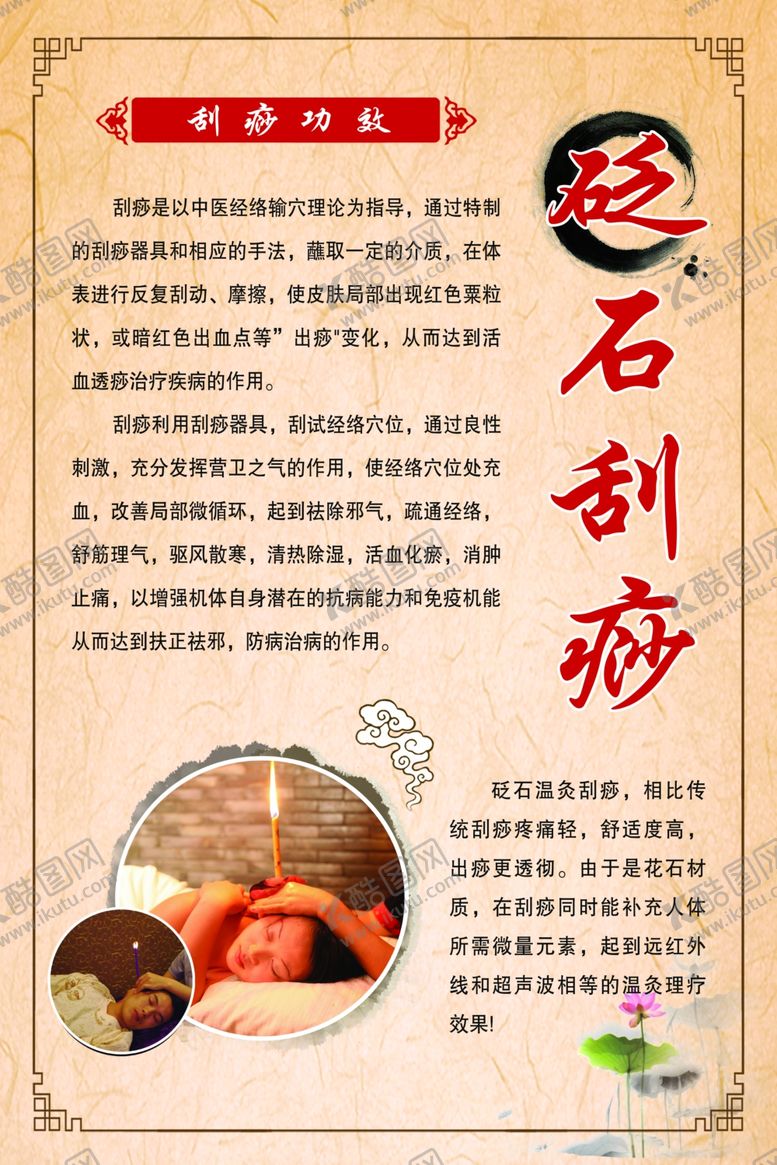 刮痧功效
砭石刮痧
刮痧是以中医经络输穴理论为指导，通过特制
的刮痧器具和相应的手法，蘸取一定的介质，在体
表进行反复刮动、摩擦，使皮肤局部出现红色粟粒
状，或暗红色出血点等”出痧"变化，从而达到活
血透痧治疗疾病的作用。
刮痧利用刮痧器具，刮试经络穴位，通过良性
刺激，充分发挥营卫之气的作用，使经络穴位处充
血，改善局部微循环，起到祛除邪气，疏通经络，
舒筋理气，驱风散寒，清热除湿，活血化瘀，消肿
止痛，以增强机体自身潜在的抗病能力和免疫机能
从而达到扶正祛邪，防病治病的作用。
砭石温灸刮痧，相比传
统刮痧疼痛轻，舒适度高，
出痧更透彻。由于是花石材
质，在刮痧同时能补充人体
所需微量元素，起到远红外
线和超声波相等的温灸理疗
效果!
酷图网
www.ikutu.com